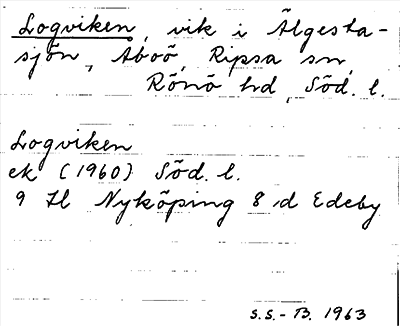 Logviken, vik i Älgesta-
sjön, Aboö, Ripsa sn,
Rönö hd, Söd. l.
Logviken
ek (1960) Söd. l.
9 H Nyköping 8 d Edeby
S.S.-B. 1963